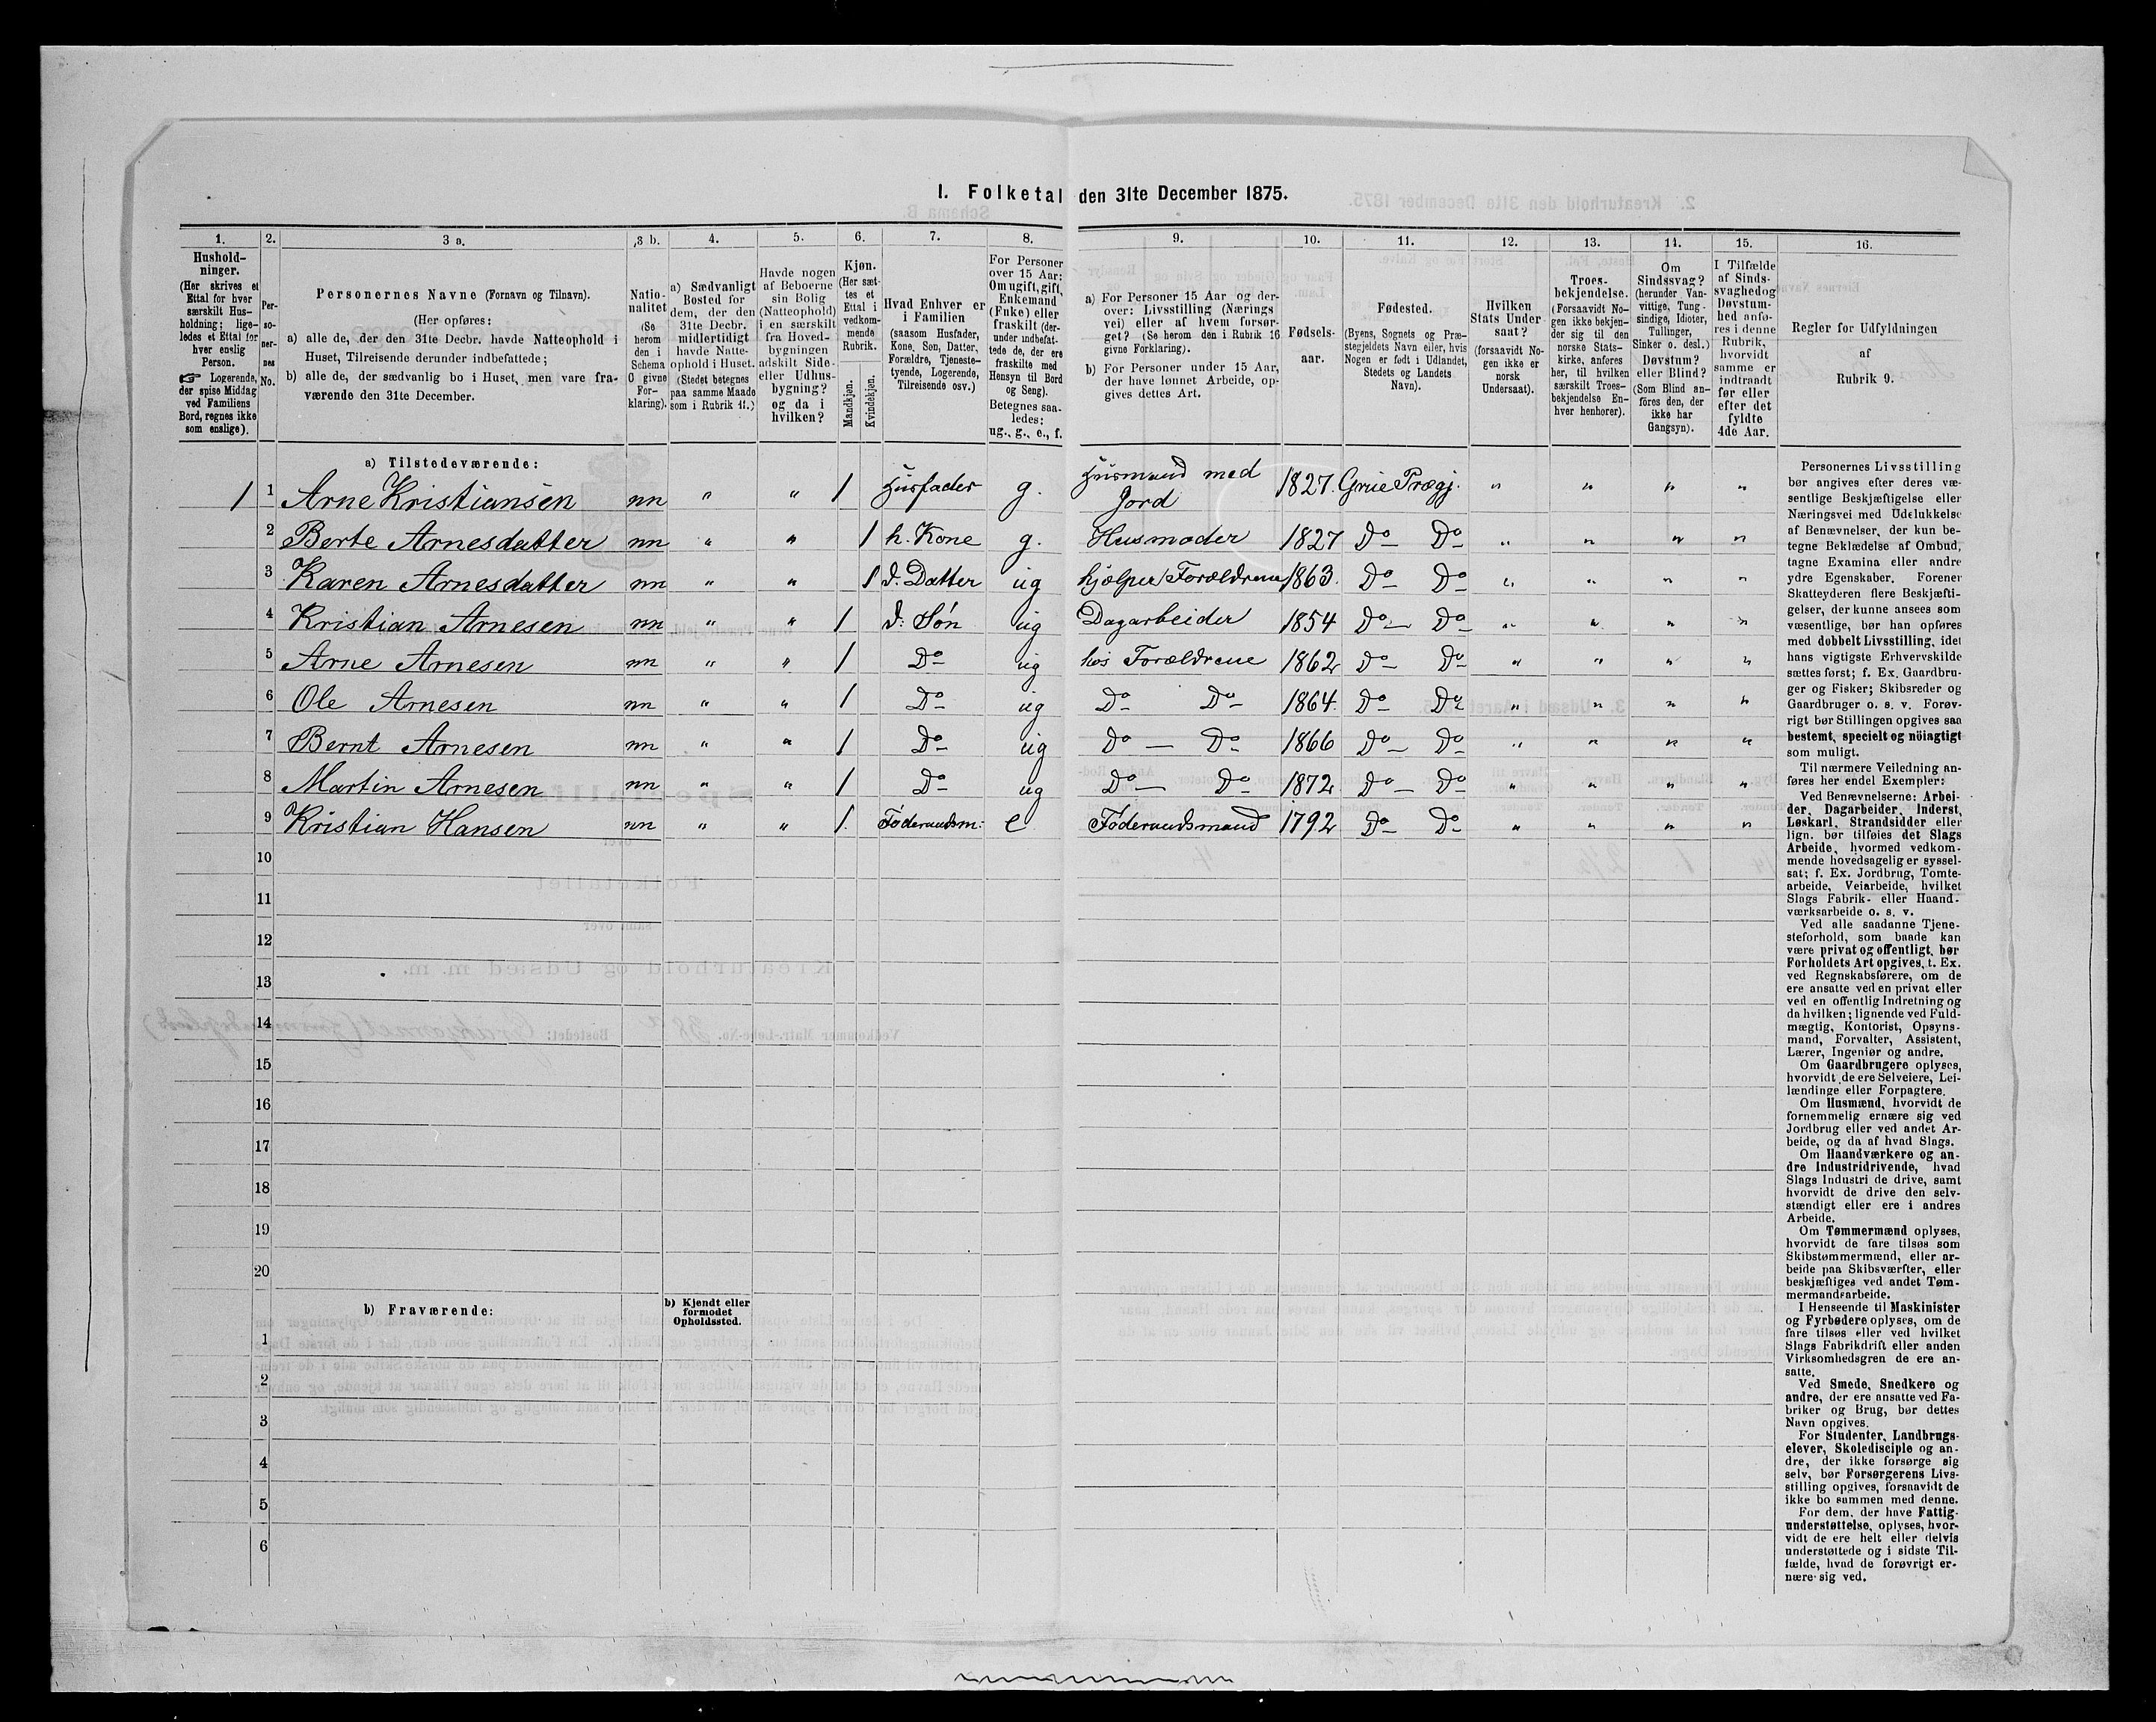 I. Folketal den 31te December 1875.
1. 2. 3 a. 3 b. 4. 5. 6. 7. 8. 9. 10. 11. 12. 13. 14. 15. 16.
Hushold-
ninger.
(Her skrives et
Ettal for hver
særskilt Hus-
holdning; lige-
ledes et Ettal for
hver enslig
Person.
☞ Logerende,
der spise Middag
ved Familiens
Bord, regnes ikke
som enslige).
Per-
so-
ner-
nes
No.
Personernes Navne (Fornavn og Tilnavn).
(Her opføres:
a) alle de, der den 31te Decbr. havde Natteophold i
Huset, Tilreisende derunder indbefattede;
b) alle de, der sædvanlig bo i Huset, men vare fra-
værende den 31te December.
Natio-
nalitet
(Se
herom
den i
Schema
C givne
For-
klaring).
a) Sædvanligt
Bosted for
dem, der den
31te Decbr.
midlertidigt
havde Natte-
ophold i Huset.
(Stedet betegnes
paa samme Maade
som i Rubrik 11.)
Havde nogen
af Beboerne
sin Bolig
(Natteophold)
i en særskilt
fra Hoved-
bygningen
adskilt Side-
eller Udhus-
bygning?
og da i
hvilken?
Kjøn.
(Her sæt-
tes et
Ettal i
vedkom-
mende
Rubrik.
Mandkjøn.
Kvindekjøn.
Hvad Enhver er
i Familien
(saasom Husfader,
Kone, Søn, Datter,
Forældre, Tjeneste-
tyende, Logerende,
Tilreisende osv.)
For Personer
over 15 Aar:
Om ugift, gift,
Enkemand
(Enke) eller
fraskilt (der-
under indbefat-
tede de, der ere
fraskilte med
Hensyn til Bord
og Seng).
Betegnes saa-
ledes:
ug., g., e., f.
a) For Personer 15 Aar og der-
over: Livsstilling (Nærings
vei) eller af hvem forsør-
get? (Se herom den i Rubrik 16
givne Forklaring).
b) For Personer under 15 Aar,
der have lønnet Arbeide, op-
gives dettes Art.
Fødsels-
aar.
Fødested.
(Byens, Sognets og Præ-
stegjeldets Navn eller, hvis
Nogen er født i Udlandet,
Stedets og Landets
Navn).
Hvilken
Stats Under
saat?
(forsaavidt No-
gen ikke er
norsk
Undersaat).
Troes-
bekjendelse.
(Forsaavidt No-
gen ikke bekjen-
der sig til den
norske Stats-
kirke, anføres
her, til hvilken
særskilt Troes-
bekjendelse En-
hver henhører).
Om
Sindssvag?
(herunder Van-
vittige, Tung-
sindige, Idioter,
Tullinger,
Sinker o. desl.)
Døvstum?
eller Blind?
(Som Blind an-
føres den, der
ikke har
Gangsyn).
I Tilfælde
af Sinds-
svaghed og
Døvstum-
hed anfø-
res i denne
Rubrik,
hvorvidt
samme er
indtraadt
før eller
efter det
fyldte
4de Aar.
Regler for Udfyldningen
af
Rubrik 9.
a) Tilstedeværende:
1 1 Arne Kristiansen nn " " 1 Husfader g. Husmand med Jord 1827. Grue Prægj. " " " "
2 Berte Arnesdatter nn " " 1 h. Kone g. Husmoder 1827 Do Do " " " "
3 Karen Arnesdatter nn " " 1 d. Datter ug hjælper Forældrene 1863. Do Do " " " "
4 Kristian Arnesen nn " " 1 d. Søn ug Dagarbeider 1854 Do Do " " " "
5 Arne Arnesen nn " " 1 Do ug hos Forældrene 1862 Do Do " " " "
6 Ole Arnesen nn " " 1 Do ug Do Do 1864. Do Do " " " "
7 Bernt Arnesen nn " " 1 Do ug Do — Do 1866 Do Do " " " "
8 Martin Arnesen nn " " 1 Do ug Do — Do 1872 Do Do " " " "
9 Kristian Hansen nn " " 1. Føderaadsm: e Føderaadsmand 1792 Do Do " " " "
10
11
12
13
14
15
16
17
18
19
20
b) Fraværende:
b) Kjendt eller
formodet
Opholdssted.
1
2
3
4
5
6
Personernes Livsstilling
bør angives efter deres væ-
sentlige Beskjæftigelse eller
Næringsvei med Udelukkelse
af Benævnelser, der kun be-
tegne Beklædelse af Ombud,
tagne Examina eller andre
ydre Egenskaber. Forener
Skatteyderen flere Beskjæfti-
gelser, der kunne ansees som
væsentlige, bør han opføres
med dobbelt Livsstilling, idet
hans vigtigste Erhvervskilde
sættes først; f. Ex. Gaardbru-
ger og Fisker; Skibsreder og
Gaardbruger o. s. v. Forøv-
rigt bør Stillingen opgives saa
bestemt, specielt og nöiagtigt
som muligt.
Til nærmere Veiledning an-
føres her endel Exempler:
Ved Benævnelserne: Arbei-
der, Dagarbeider, Inderst,
Løskarl, Strandsidder eller
lign. bør tilføies det Slags
Arbeide, hvormed vedkom-
mende hovedsagelig er syssel-
sat; f. Ex. Jordbrug, Tomte-
arbeide, Veiarbeide, hvilket
Slags Fabrik- eller Haand-
værksarbeide o. s. v.
Ved alle saadanne Tjene-
steforhold, som baade kan
være privat og offentligt, bør
Forholdets Art opgives, t. Ex.
ved Regnskabsførere, om de
ere ansatte ved en privat eller
ved en offentlig Indretning og
da hvilken; lignende ved Fuld-
mægtig, Kontorist, Opsyns-
mand, Forvalter, Assistent,
Lærer, Ingeniør og andre.
Om Gaardbrugere oplyses,
hvorvidt de ere Selveiere, Lei-
lændinge eller Forpagtere.
Om Husmænd, hvorvidt de
fornemmelig ernære sig ved
Jordbrug eller ved andet Ar-
beide, og da af hvad Slags.
Om Haandværkere og an-
dre Industridrivende, hvad
Slags Industri de drive, samt
hvorvidt de drive den selv-
stændigt eller ere i andres
Arbeide.
Om Tømmermænd oplyses,
hvorvidt de fare tilsøs som
Skibstømmermænd, eller ar-
beide paa Skibsværfter, eller
beskjæftiges ved andet Tøm-
mermandsarbeide.
I Henseende til Maskinister
og Fyrbødere oplyses, om de
fare tilsøs eller ved hvilket
Slags Fabrikdrift eller anden
Virksomhedsgren de ere an-
satte.
Ved Smede, Snedkere og
andre, der ere ansatte ved Fa-
briker og Brug, bør dettes
Navn opgives.
For Studenter, Landbrugs-
elever, Skoledisciple og an-
dre, der ikke forsørge sig
selv, bør Forsørgerens Livs-
stilling opgives, forsaavidt de
ikke bo sammen med denne.
For dem, der have Fattig-
understøttelse, oplyses, hvor-
vidt de ere helt eller delvis
understøttede og i sidste Til-
fælde, hvad de forøvrigt er-
nære sig ved.